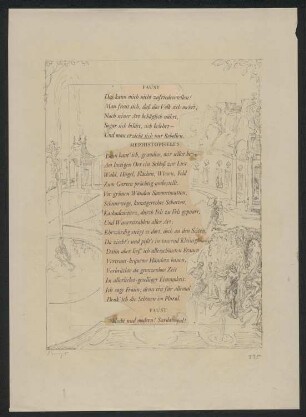 FAUST
Das kann mich nicht zufriedenstellen!
Man freut sich, daß das Volk sich mehrt,
Nach seiner Art behäglich nährt,
Sogar sich bildet, sich belehrt –
Und man erzieht sich nur Rebellen.
MEPHISTOPHELES
Dann baut' ich, grandios, mir selbst bewußt,
Am lustigen Ort ein Schloß zur Lust.
Wald, Hügel, Flächen, Wiesen, Feld
Zum Garten prächtig umbestellt.
Vor grünen Wänden Sammetmatten,
Schnurwege, kunstgerechte Schatten,
Kaskadensturz, durch Fels zu Fels gepaart,
Und Wasserstrahlen aller Art;
Ehrwürdig steigt es dort, doch an den Seiten
Da zischt's und pißt's in tausend Kleinigkeiten.
Dann aber ließ' ich allerschönsten Frauen
Vertraut-bequeme Häuslein bauen,
Verbrächte da grenzenlose Zeit
In allerliebst-geselliger Einsamkeit.
Ich sage Fraun; denn ein für allemal
Denk' ich die Schönen im Plural.
FAUST
Schlecht und modern! Sardanapal!